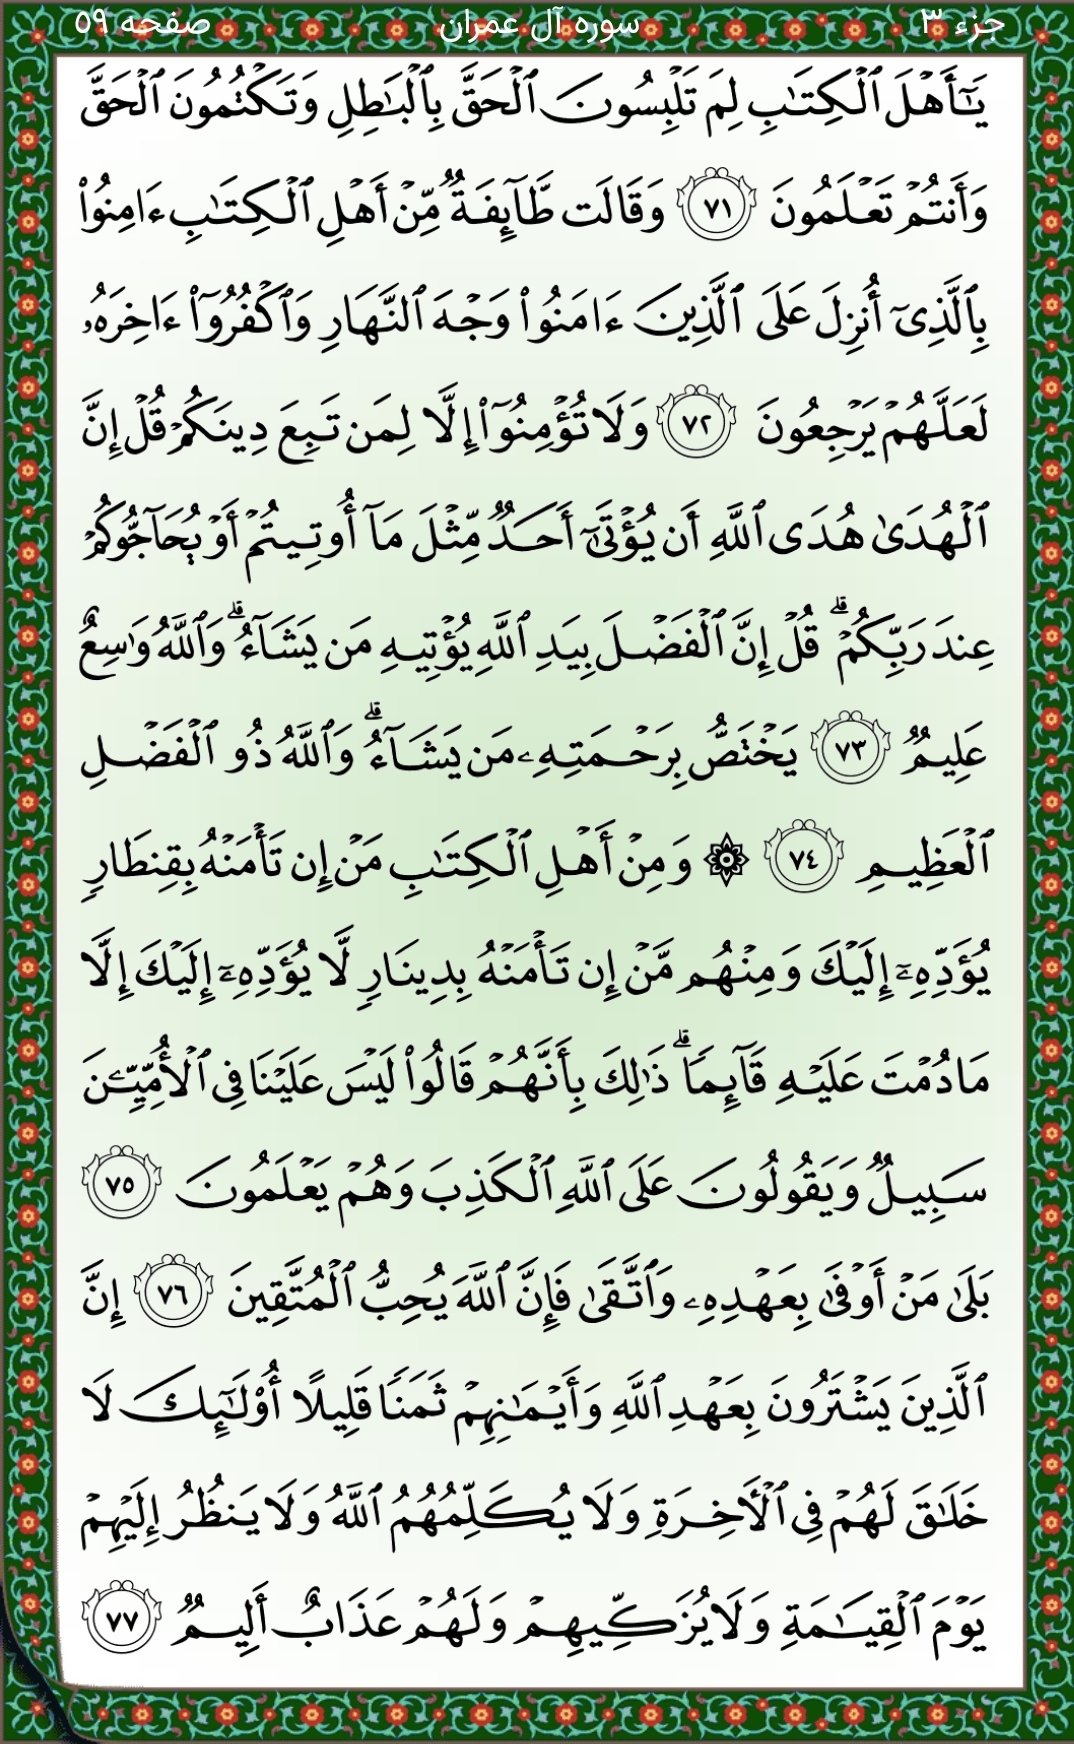 جزء ۳ سوره آل عمران صفحه ۵۹
يَـٰٓأَهۡلَ ٱلۡكِتَـٰبِ لِمَ تَلۡبِسُونَ ٱلۡحَقَّ بِٱلۡبَـٰطِلِ وَتَكۡتُمُونَ ٱلۡحَقَّ
وَأَنتُمۡ تَعۡلَمُونَ ٧١ وَقَالَت طَّآئِفَةٌ مِّنۡ أَهۡلِ ٱلۡكِتَـٰبِ ءَامِنُواْ
بِٱلَّذِىٓ أُنزِلَ عَلَى ٱلَّذِينَ ءَامَنُواْ وَجۡهَ ٱلنَّهَارِ وَٱكۡفُرُوٓاْ ءَاخِرَهُۥ
لَعَلَّهُمۡ يَرۡجِعُونَ ٧٢ وَلَا تُؤۡمِنُوٓاْ إِلَّا لِمَن تَبِعَ دِينَكُمۡ قُلۡ إِنَّ
ٱلۡهُدَىٰ هُدَى ٱللَّهِ أَن يُؤۡتَىٰٓ أَحَدٌ مِّثۡلَ مَآ أُوتِيتُمۡ أَوۡ يُحَآجُّوكُمۡ
عِندَ رَبِّكُمۡۗ قُلۡ إِنَّ ٱلۡفَضۡلَ بِيَدِ ٱللَّهِ يُؤۡتِيهِ مَن يَشَآءُۗ وَٱللَّهُ وَٰسِعٌ
عَلِيمٌ ٧٣ يَخۡتَصُّ بِرَحۡمَتِهِۦ مَن يَشَآءُۗ وَٱللَّهُ ذُو ٱلۡفَضۡلِ
ٱلۡعَظِيمِ ٧٤ ۞ وَمِنۡ أَهۡلِ ٱلۡكِتَـٰبِ مَنۡ إِن تَأۡمَنۡهُ بِقِنطَارٍ
يُؤَدِّهِۦٓ إِلَيۡكَ وَمِنۡهُم مَّنۡ إِن تَأۡمَنۡهُ بِدِينَارٍ لَّا يُؤَدِّهِۦٓ إِلَيۡكَ إِلَّا
مَا دُمۡتَ عَلَيۡهِ قَآئِمًاۗ ذَٰلِكَ بِأَنَّهُمۡ قَالُواْ لَيۡسَ عَلَيۡنَا فِى ٱلۡأُمِّيِّـۧنَ
سَبِيلٌ وَيَقُولُونَ عَلَى ٱللَّهِ ٱلۡكَذِبَ وَهُمۡ يَعۡلَمُونَ ٧٥
بَلَىٰ مَنۡ أَوۡفَىٰ بِعَهۡدِهِۦ وَٱتَّقَىٰ فَإِنَّ ٱللَّهَ يُحِبُّ ٱلۡمُتَّقِينَ ٧٦ إِنَّ
ٱلَّذِينَ يَشۡتَرُونَ بِعَهۡدِ ٱللَّهِ وَأَيۡمَـٰنِهِمۡ ثَمَنًا قَلِيلًا أُوْلَـٰٓئِكَ لَا
خَلَـٰقَ لَهُمۡ فِى ٱلۡأَخِرَةِ وَلَا يُكَلِّمُهُمُ ٱللَّهُ وَلَا يَنظُرُ إِلَيۡهِمۡ
يَوۡمَ ٱلۡقِيَـٰمَةِ وَلَا يُزَكِّيهِمۡ وَلَهُمۡ عَذَابٌ أَلِيمٌ ٧٧